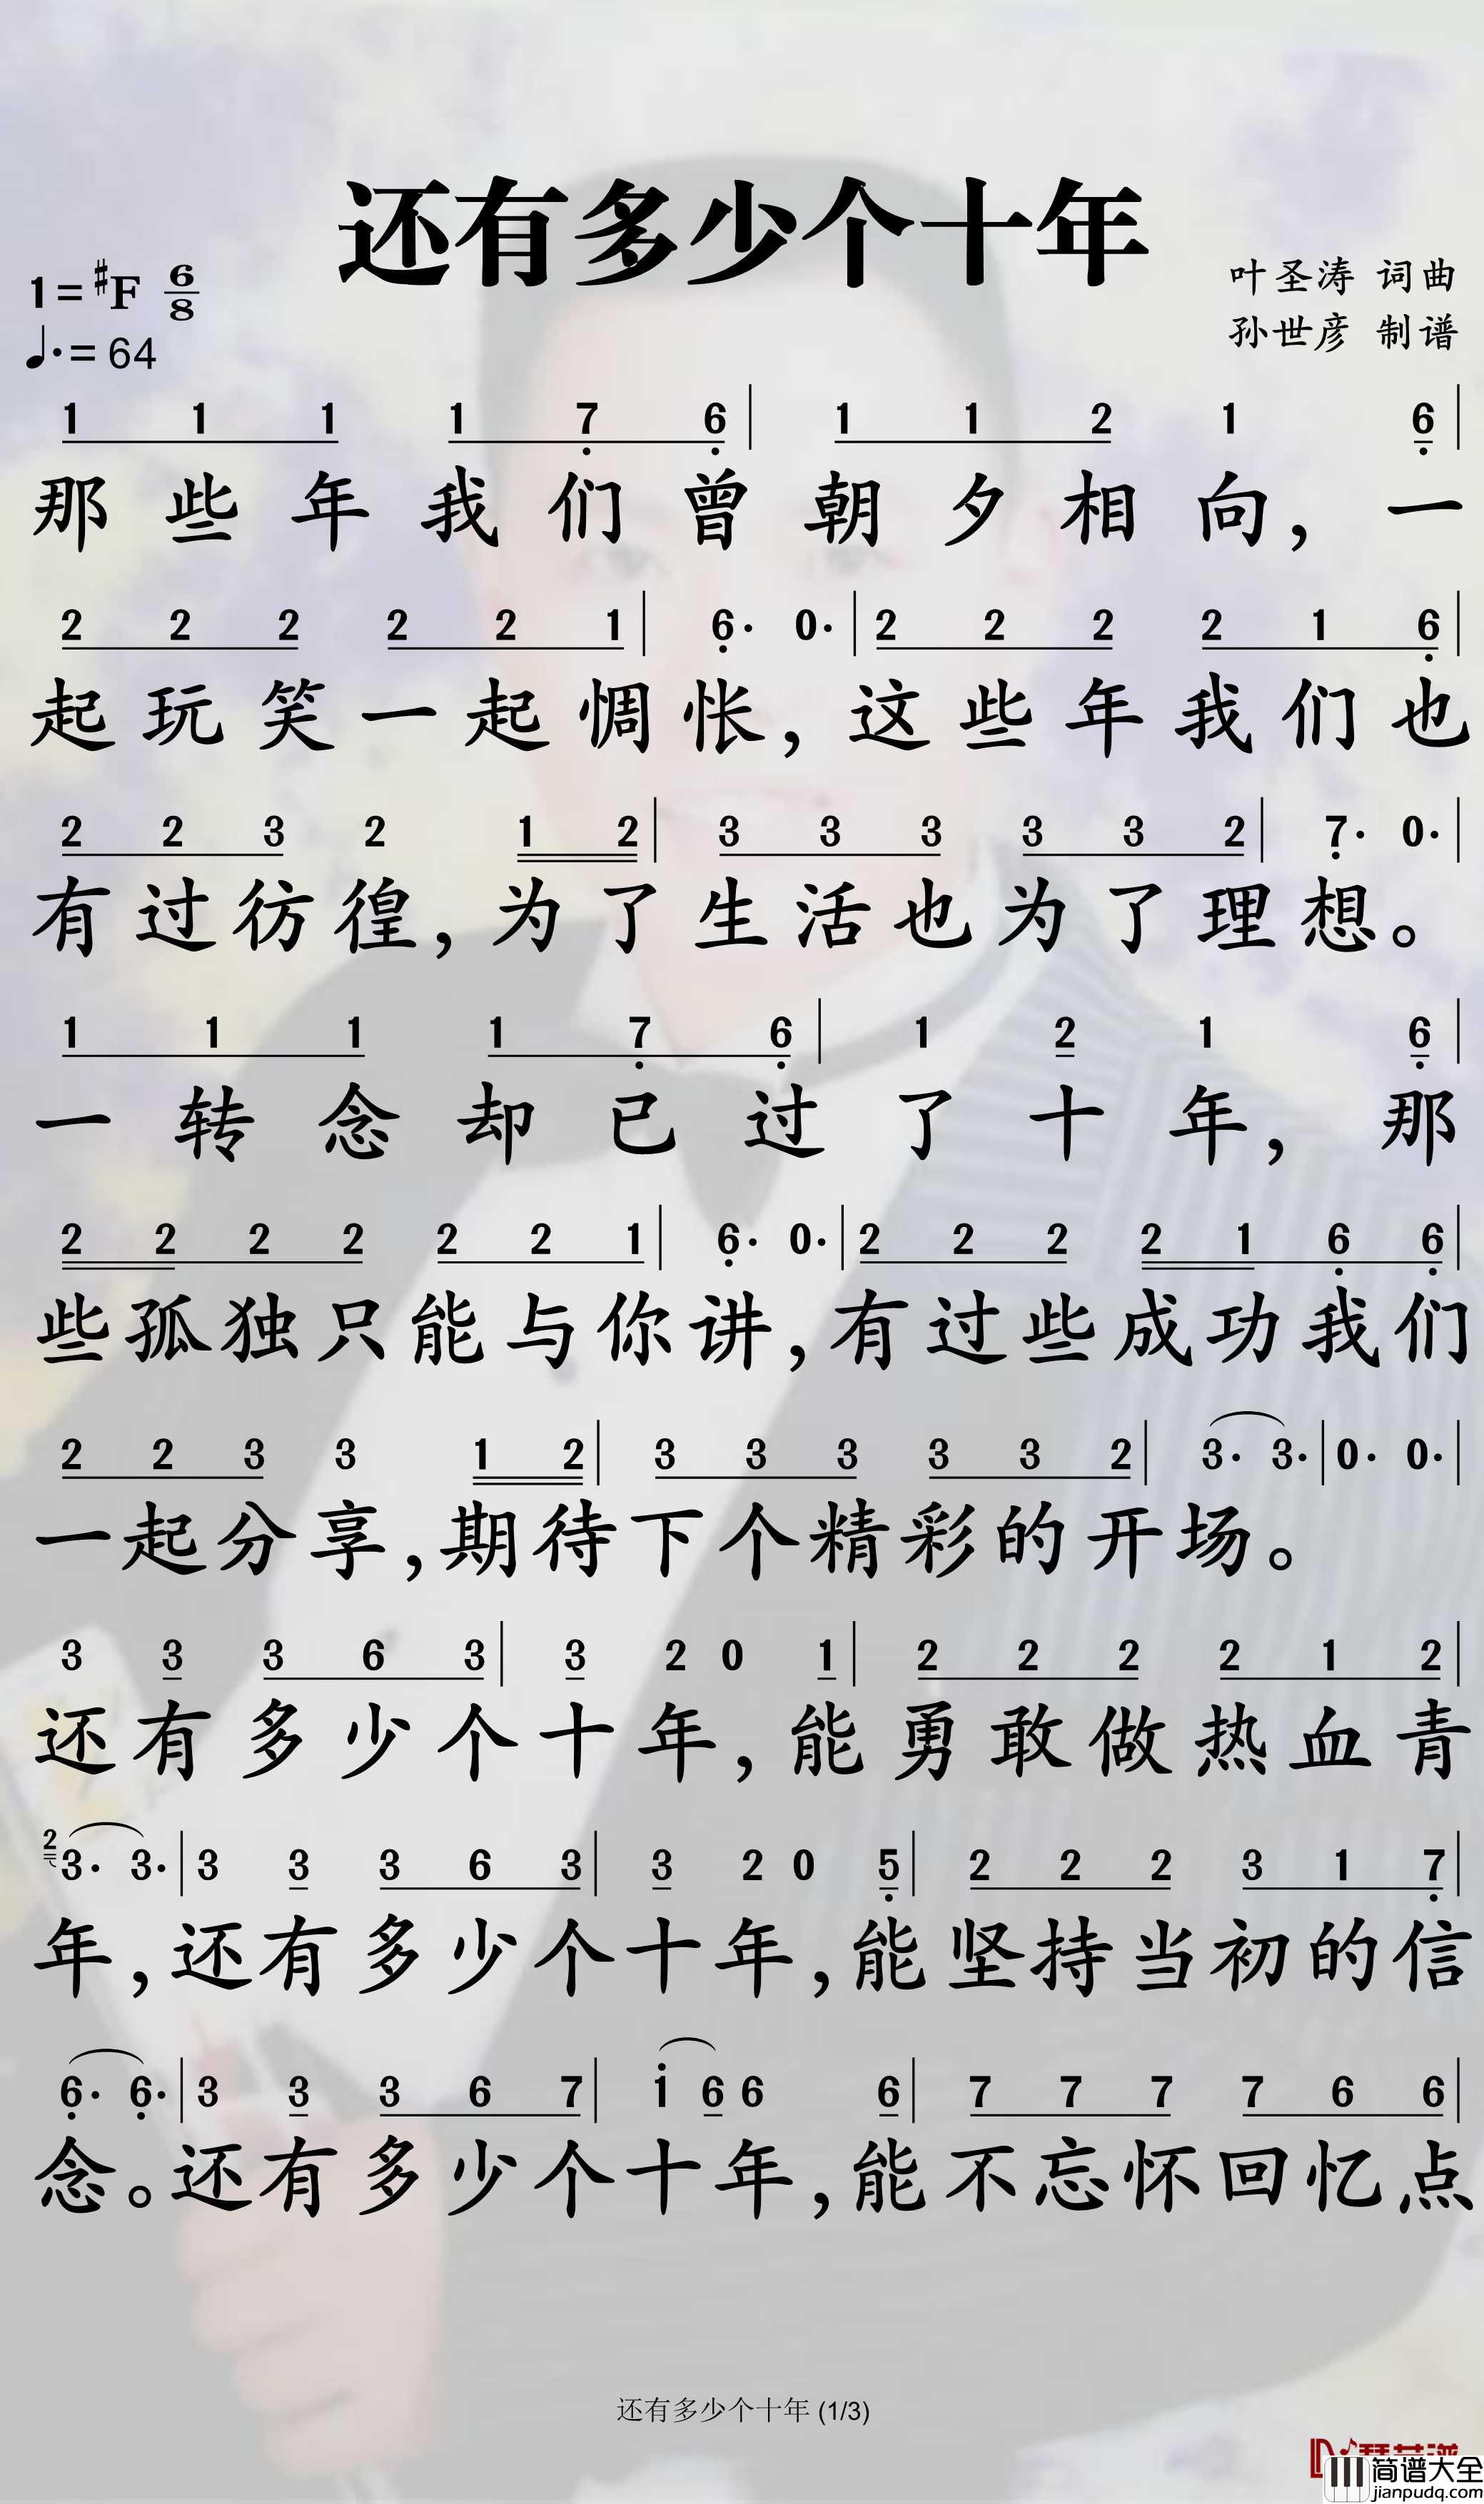 还有多少个十年
1=♯F 6/8
叶圣涛 词曲
♩.=64
孙世彦 制谱
1 1 1 1 7̣ 6̣ | 1 1 2 1 6̣ |
那些年我们曾朝夕相向，一
2 2 2 2 2 1 | 6̣· 0· | 2 2 2 2 1 6̣ |
起玩笑一起惆怅，这些年我们也
2 2 3 2 1 2 | 3 3 3 3 3 2 | 7̣· 0· |
有过彷徨，为了生活也为了理想。
1 1 1 1 7̣ 6̣ | 1 2 1 6̣ |
一转念却已过了十年，那
2 2 2 2 2 2 1 | 6̣· 0· | 2 2 2 2 1 6̣ 6̣ |
些孤独只能与你讲，有过些成功我们
2 2 3 3 1 2 | 3 3 3 3 3 2 | 3· 3· | 0· 0· |
一起分享，期待下个精彩的开场。
3 3 3 6 3 | 3 2 0 1 | 2 2 2 2 1 2 |
还有多少个十年，能勇敢做热血青
2 3· 3· | 3 3 3 6 3 | 3 2 0 5̣ | 2 2 2 3 1 7̣ |
年，还有多少个十年，能坚持当初的信
6̣· 6̣· | 3 3 3 6 7 | 1̇ 6 6 6 | 7 7 7 7 6 6 |
念。还有多少个十年，能不忘怀回忆点
还有多少个十年 (1/3)
简谱大全
jianpudq.com